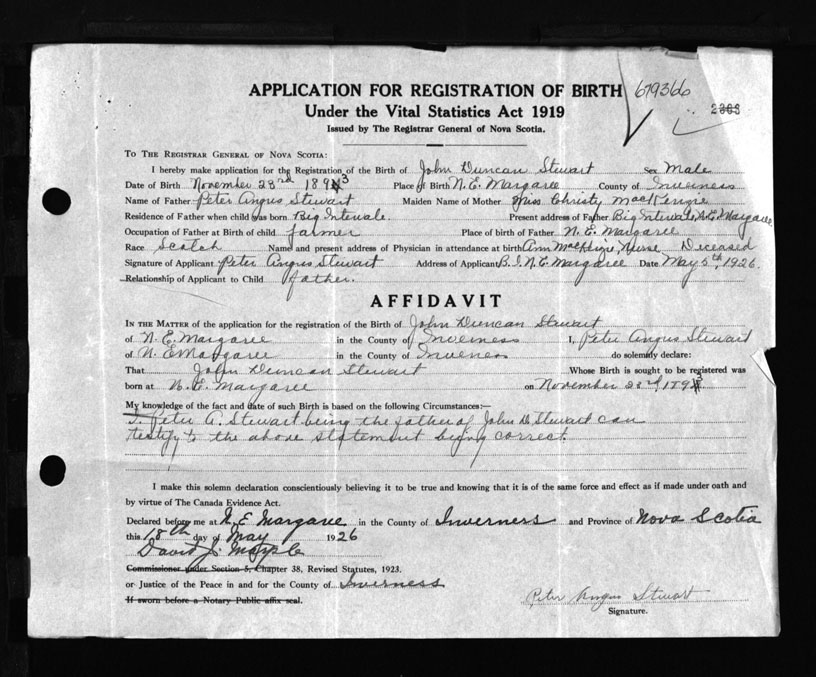 APPLICATION FOR REGISTRATION OF BIRTH 679366
Under the Vital Statistics Act 1919
Issued by The Registrar General of Nova Scotia.
TO THE REGISTRAR GENERAL OF NOVA SCOTIA:
I hereby make application for the Registration of the Birth of John Duncan Stewart Sex Male
Date of Birth November 23rd 1893 Place of Birth N. E. Margaree County of Inverness
Name of Father Peter Angus Stewart Maiden Name of Mother Miss Christy MacKenzie
Residence of Father when child was born Big Intevale. Present address of Father Big Intevale, N.E. Margaree
Occupation of Father at Birth of child farmer Place of birth of Father N. E. Margaree
Race Scotch Name and present address of Physician in attendance at birth Ann MacKenzie, Nurse Deceased
Signature of Applicant Peter Angus Stewart Address of Applicant B.I. N.E. Margaree Date May 5th, 1926.
Relationship of Applicant to Child father.
AFFIDAVIT
IN THE MATTER of the application for the registration of the Birth of John Duncan Stewart
of N. E. Margaree in the County of Inverness I, Peter Angus Stewart
of N. E Margaree in the County of Inverness do solemnly declare:
That John Duncan Stewart Whose Birth is sought to be registered was
born at N. E. Margaree on November 23rd, 1893
My knowledge of the fact and date of such Birth is based on the following Circumstances:—
I. Peter A. Stewart being the father of John D. Stewart can
testify to the above statement being correct.
I make this solemn declaration conscientiously believing it to be true and knowing that it is of the same force and effect as if made under oath and
by virtue of The Canada Evidence Act.
Declared before me at N. E Margaree in the County of Inverness and Province of Nova Scotia
this 18th day of May 1926
David J.
Commissioner under Section 5, Chapter 38, Revised Statutes, 1923.
or Justice of the Peace in and for the County of Inverness
If sworn before a Notary Public affix seal.
Peter Angus Stewart
Signature.